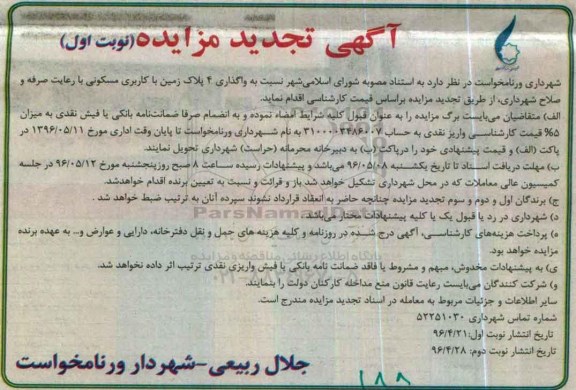 آگهی تجدید مزایده (نوبت اول)
شهرداری ورنامخواست در نظر دارد به استناد مصوبه شورای اسلامی‌شهر نسبت به واگذاری ۴ پلاک زمین با کاربری مسکونی با رعایت صرفه و
صلاح شهرداری، از طریق تجدید مزایده براساس قیمت کارشناسی اقدام نماید.
الف) متقاضیان می‌بایست برگ مزایده را به عنوان قبول کلیه شرایط امضاء نموده و به انضمام صرفا ضمانت‌نامه بانکی یا فیش نقدی به میزان
۵% قیمت کارشناسی واریز نقدی به حساب ۳۱۰۰۰۰۳۴۸۶۰۰۷ به نام شهرداری ورنامخواست تا پایان وقت اداری مورخ ۱۳۹۶/۰۵/۱۱ در
پاکت (الف) و قیمت پیشنهادی خود را درپاکت (ب) به دبیرخانه محرمانه (حراست) شهرداری تحویل نمایند.
ب) مهلت دریافت اسناد تا تاریخ یکشنبه ۹۶/۰۵/۰۸ می‌باشد و پیشنهادات رسیده ساعت ۸ صبح روزپنجشنبه مورخ ۹۶/۰۵/۱۲ در جلسه
کمیسیون عالی معاملات که در محل شهرداری تشکیل خواهد شد باز و قرائت و نسبت به تعیین برنده اقدام خواهدشد.
ج) برندگان اول و دوم و سوم تجدید مزایده چنانچه حاضر به انعقاد قرارداد نشوند سپرده آنان به ترتیب ضبط خواهد شد.
د) شهرداری در رد یا قبول یک یا کلیه پیشنهادات مختار می‌باشد.
ه) پرداخت هزینه‌های کارشناسی، آگهی درج شده در روزنامه و کلیه هزینه های حمل و نقل دفترخانه، دارایی و عوارض و... به عهده برنده
مزایده خواهد بود.
ی) به پیشنهادات مخدوش، مبهم و مشروط یا فاقد ضمانت نامه بانکی یا فیش واریزی نقدی ترتیب اثر داده نخواهد شد.
و) شرکت کنندگان می‌بایست رعایت قانون منع مداخله کارکنان دولت را بنمایند.
سایر اطلاعات و جزئیات مربوط به معامله در اسناد تجدید مزایده مندرج است.
شماره تماس شهرداری ۵۲۲۵۱۰۳۰
تاریخ انتشار نوبت اول: ۹۶/۴/۲۱
تاریخ انتشار نوبت دوم: ۹۶/۴/۲۸
جلال ربیعی-شهردار ورنامخواست
۱۸۸